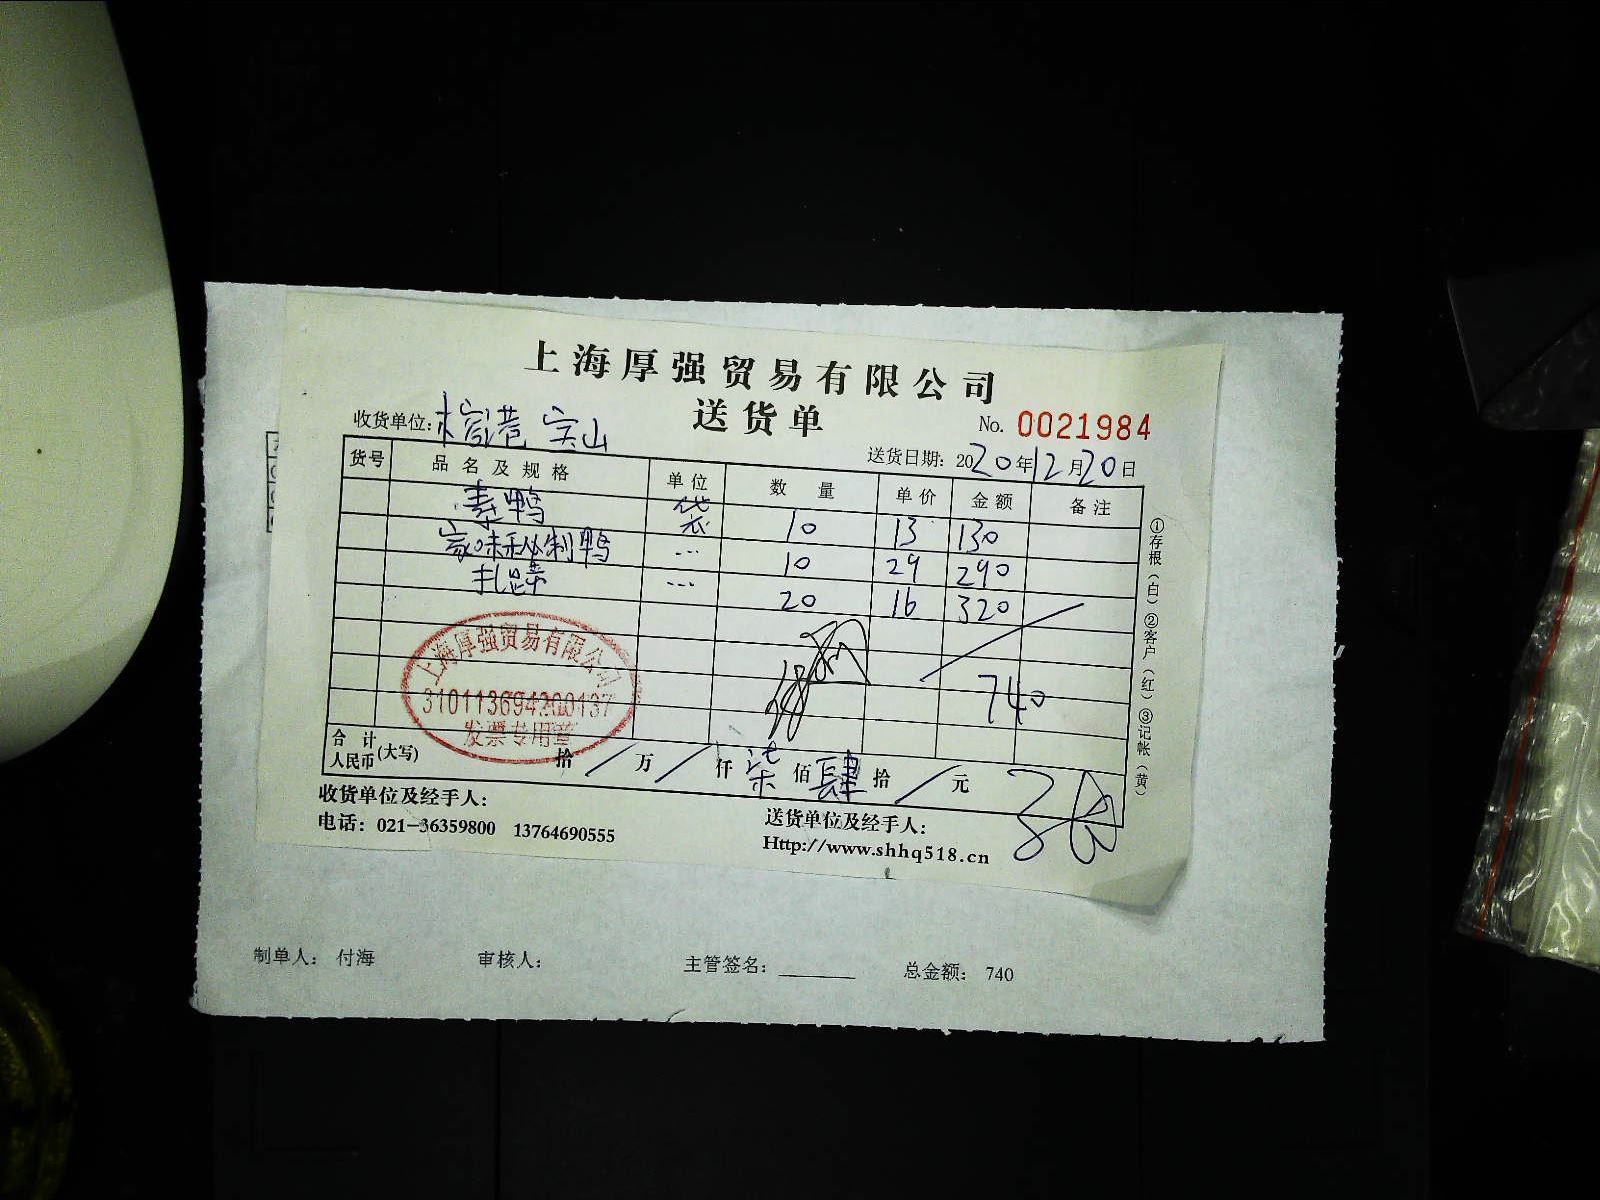 上海厚强贸易有限公司
送货单
No. 0021984
收货单位: 榕港 宝山
送货日期: 2020年12月20日
货号 品名及规格 单位 数量 单价 金额 备注
素鸭 袋 10 13 130
家味秘制鸭 … 10 29 290
扎蹄 … 20 16 320
740
上海厚强贸易有限公司
310113694200137
发票专用章
合计人民币(大写) 拾 / 万 / 仟 柒 佰 肆 拾 / 元
①存根(白)②客户(红)③记帐(黄)
收货单位及经手人:
送货单位及经手人:
电话: 021-36359800 13764690555
Http://www.shhq518.cn
制单人: 付海 审核人: 主管签名: ________ 总金额: 740